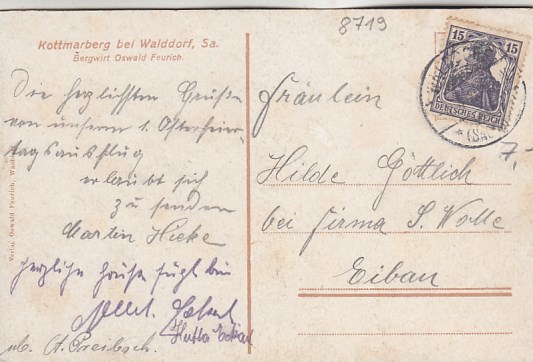 8719
Kottmarberg bei Walddorf, Sa.
Bergwirt Oswald Feurich.
15 15
DEUTSCHES REICH
(SA
7.-
Die herzlichsten Grüße
von unserm 1. Osterfeier-
tagsausflug
erlaubt sich
zu senden
Martin Hieke
herzliche Grüße fügt bei
A. Preibsch.
Fräulein
Hilde Göttlich
bei Firma S. Wolle
Eibau
Verlag Oswald Feurich,